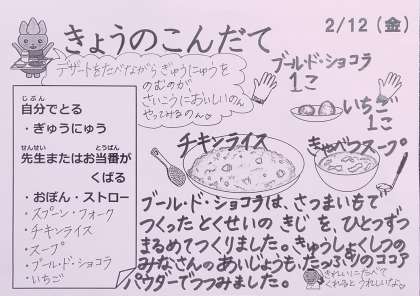 2/12(金)
きょうのこんだて
デザートをたべながらぎゅうにゅうを
のむのが
さいこうにおいしいのん
やってみるのん。
ブール・ド・ショコラ
1こ
いちご
1こ
チキンライス
きゃべつスープ
じぶん
自分でとる
・ぎゅうにゅう
せんせい とうばん
先生またはお当番が
くばる
・おぼん・ストロー
・スプーン・フォーク
・チキンライス
・スープ
・ブール・ド・ショコラ
・いちご
ブール・ド・ショコラは、さつまいもで
つくったとくせいのきじを、ひとつずつ
まるめてつくりました。きゅうしょくしつの
みなさんのあいじょうも、たっぷりのココア
パウダーでつつみました。
きれいにたべて
くれるとうれしいな。